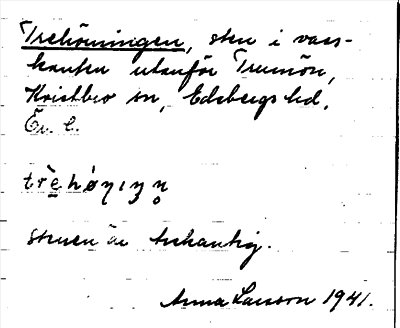 Trehörningen, sten i vass-
kanten utanför Trumön,
Kvistbro sn, Edsbergs hd.
Ör. l.
trehøŋɩŋn̥
stenen är trekantig.
Anna Larsson 1941.